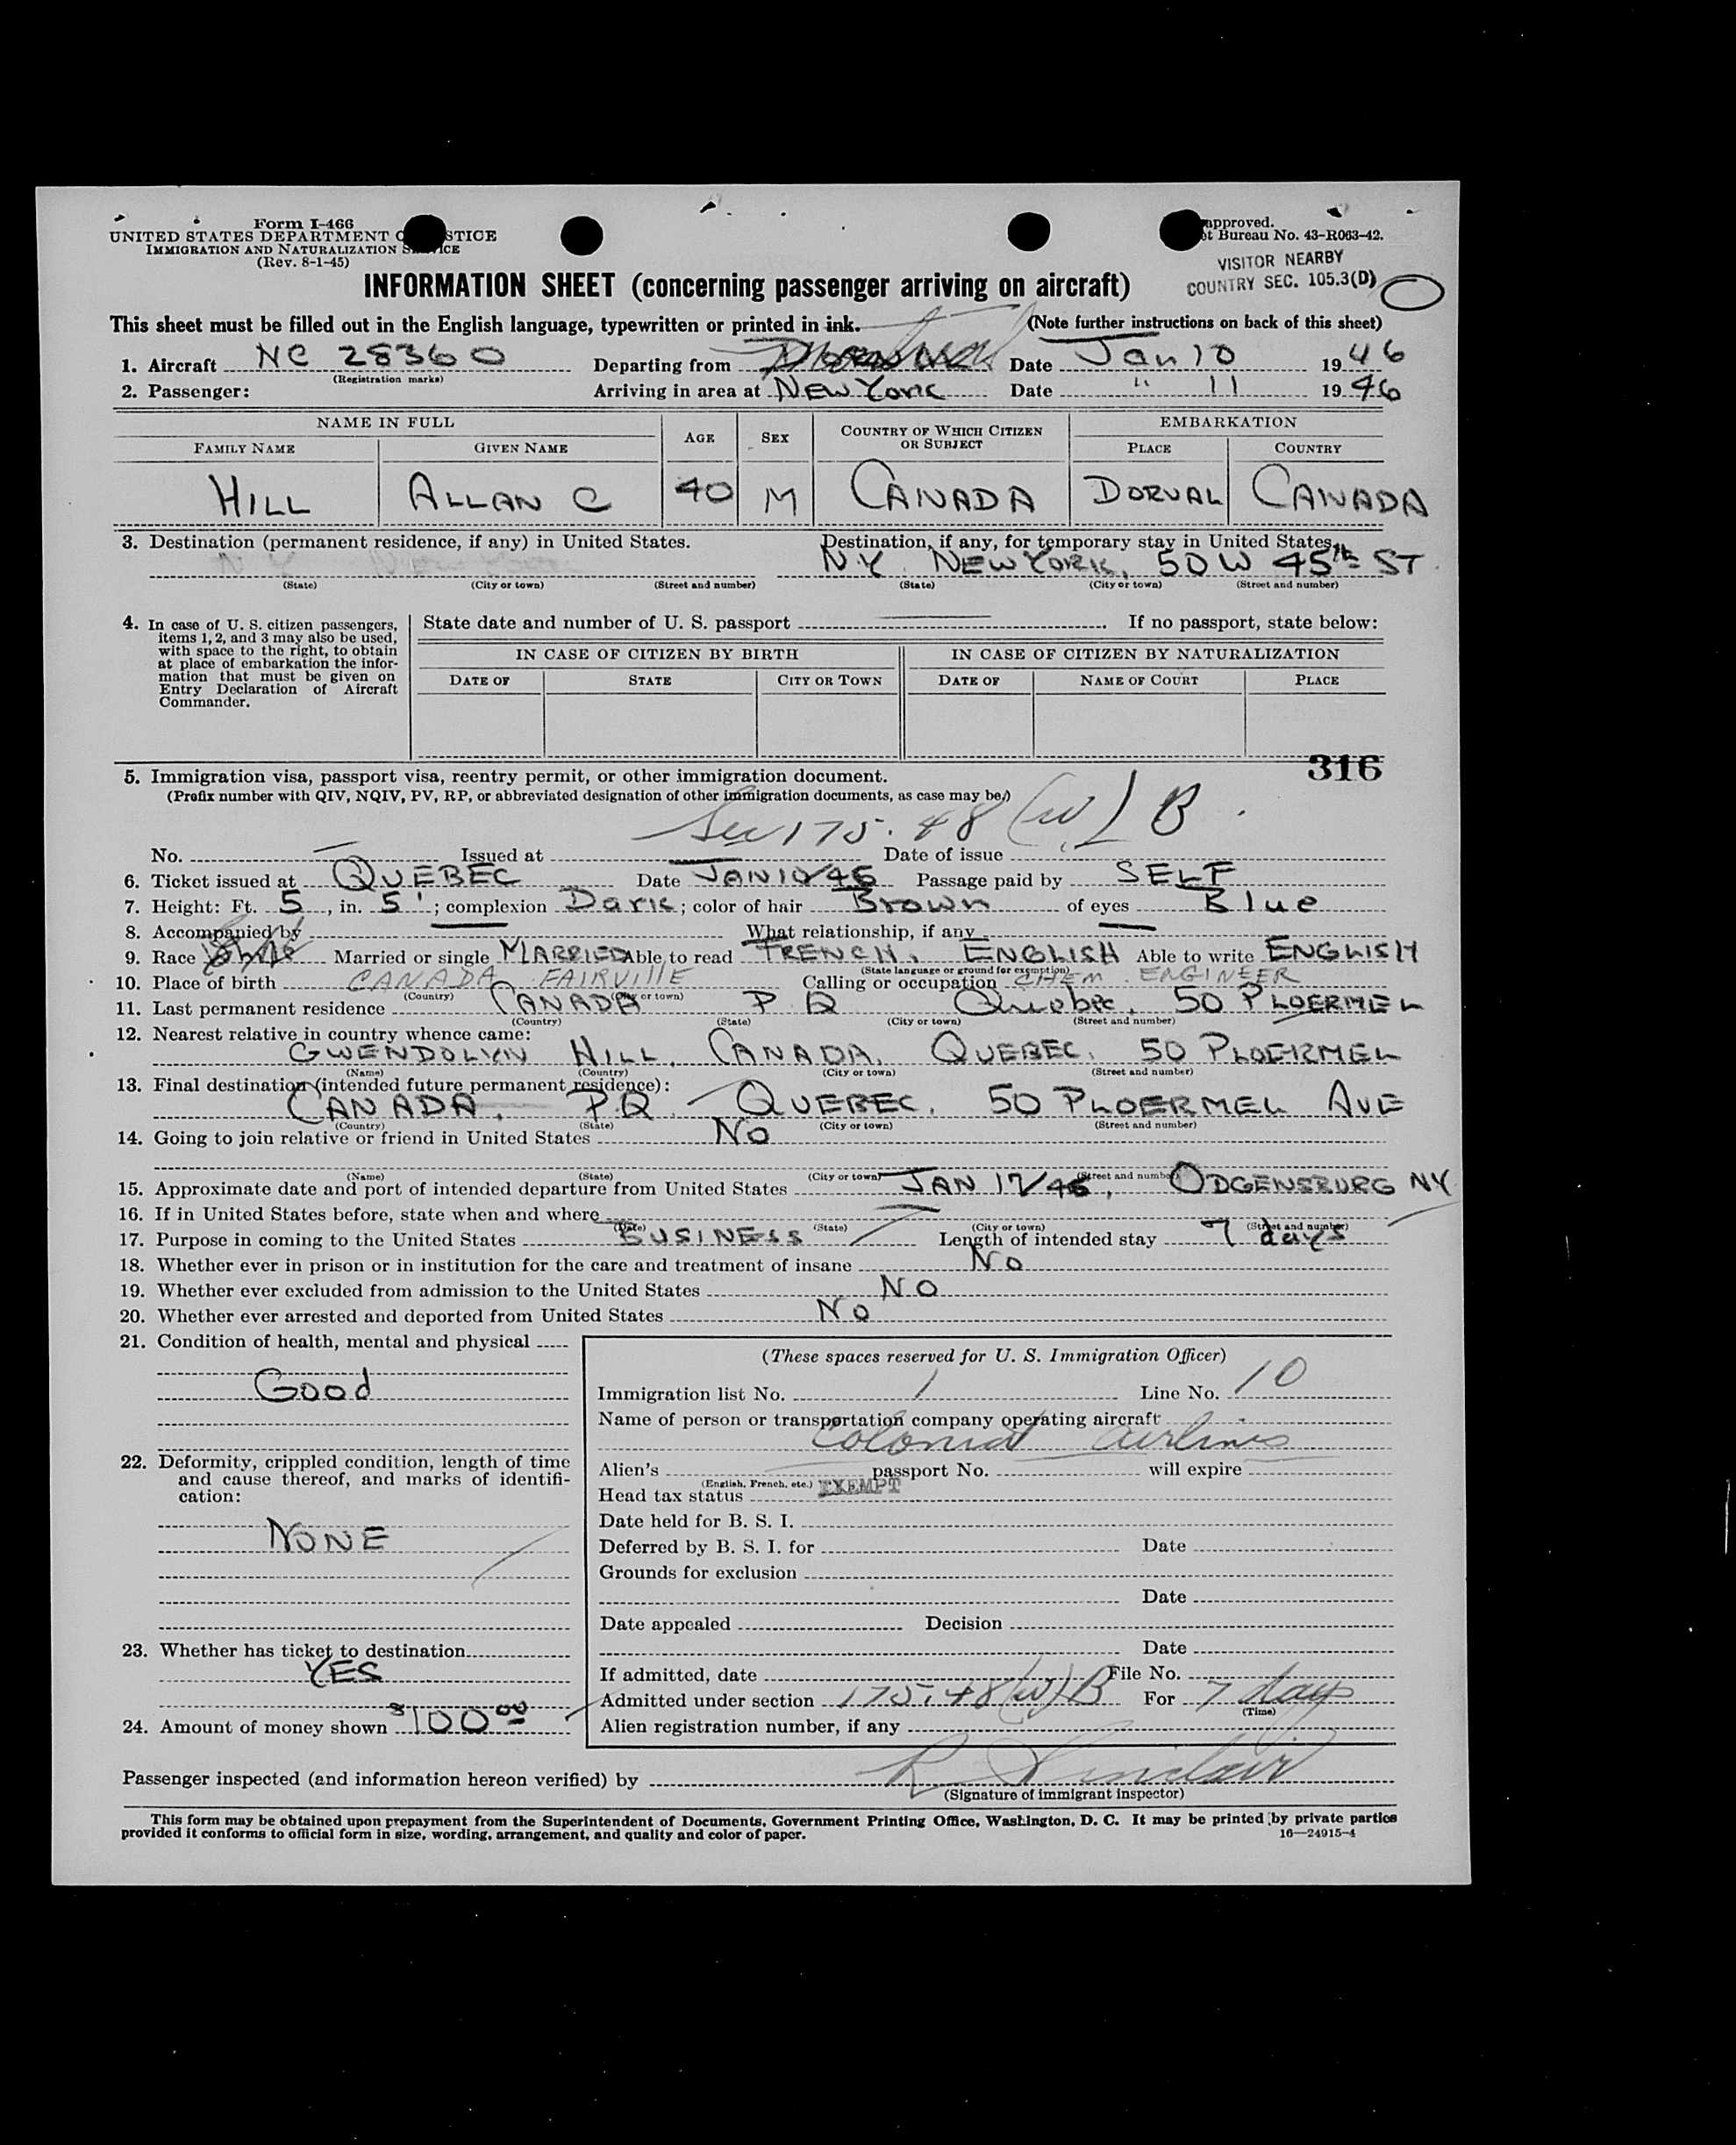 Form I-466
UNITED STATES DEPARTMENT O STICE
IMMIGRATION AND NATURALIZATION S ICE
(Rev. 8-1-45)
approved.
t Bureau No. 43-R063-42.
VISITOR NEARBY
COUNTRY SEC. 105.3(D)
INFORMATION SHEET (concerning passenger arriving on aircraft)
This sheet must be filled out in the English language, typewritten or printed in ink. (Note further instructions on back of this sheet)
1. Aircraft NC 28360 Departing from Date Jan 10 1946
(Registration marks)
2. Passenger: Arriving in area at NEW YORK Date " 11 1946
NAME IN FULL AGE SEX COUNTRY OF WHICH CITIZEN OR SUBJECT EMBARKATION
FAMILY NAME GIVEN NAME PLACE COUNTRY
HILL ALLAN C 40 M CANADA DORVAL CANADA
3. Destination (permanent residence, if any) in United States. Destination, if any, for temporary stay in United States.
N.Y. NEW YORK, 50 W 45th ST
(State) (City or town) (Street and number) (State) (City or town) (Street and number)
4. In case of U. S. citizen passengers, items 1, 2, and 3 may also be used, with space to the right, to obtain at place of embarkation the information that must be given on Entry Declaration of Aircraft Commander.
State date and number of U. S. passport If no passport, state below:
IN CASE OF CITIZEN BY BIRTH IN CASE OF CITIZEN BY NATURALIZATION
DATE OF STATE CITY OR TOWN DATE OF NAME OF COURT PLACE
316
5. Immigration visa, passport visa, reentry permit, or other immigration document.
(Prefix number with QIV, NQIV, PV, RP, or abbreviated designation of other immigration documents, as case may be.)
Sec 175.48 (w) B
No. Issued at Date of issue
6. Ticket issued at QUEBEC Date JAN 10/46 Passage paid by SELF
7. Height: Ft. 5, in. 5; complexion Dark; color of hair Brown of eyes Blue
8. Accompanied by What relationship, if any
9. Race Married or single MARRIED Able to read FRENCH, ENGLISH Able to write ENGLISH
(State language or ground for exemption)
10. Place of birth CANADA FAIRVILLE Calling or occupation CHEM. ENGINEER
(Country) (City or town)
11. Last permanent residence CANADA P Q Quebec, 50 PLOERMEL
(Country) (State) (City or town) (Street and number)
12. Nearest relative in country whence came:
GWENDOLYN HILL, CANADA, QUEBEC, 50 PLOERMEL
(Name) (Country) (City or town) (Street and number)
13. Final destination (intended future permanent residence):
CANADA, P.Q. QUEBEC, 50 PLOERMEL AVE
(Country) (State) (City or town) (Street and number)
14. Going to join relative or friend in United States No
(Name) (State) (City or town) (Street and number)
15. Approximate date and port of intended departure from United States JAN 17/46, ODGENSBURG NY
16. If in United States before, state when and where
(Date) (State) (City or town) (Street and number)
17. Purpose in coming to the United States BUSINESS Length of intended stay 7 days
18. Whether ever in prison or in institution for the care and treatment of insane No
19. Whether ever excluded from admission to the United States NO
20. Whether ever arrested and deported from United States No
21. Condition of health, mental and physical
Good
22. Deformity, crippled condition, length of time and cause thereof, and marks of identification:
NONE
23. Whether has ticket to destination
YES
24. Amount of money shown $100.00
(These spaces reserved for U. S. Immigration Officer)
Immigration list No. 1 Line No. 10
Name of person or transportation company operating aircraft
Colonial Airlines
Alien's passport No. will expire
(English, French, etc.)
Head tax status EXEMPT
Date held for B. S. I.
Deferred by B. S. I. for Date
Grounds for exclusion
Date
Date appealed Decision
Date
If admitted, date File No.
Admitted under section 175.48(w)B For 7 days
(Time)
Alien registration number, if any
Passenger inspected (and information hereon verified) by R Sinclair
(Signature of immigrant inspector)
This form may be obtained upon prepayment from the Superintendent of Documents, Government Printing Office, Washington, D. C. It may be printed by private parties
provided it conforms to official form in size, wording, arrangement, and quality and color of paper. 16—24915-4